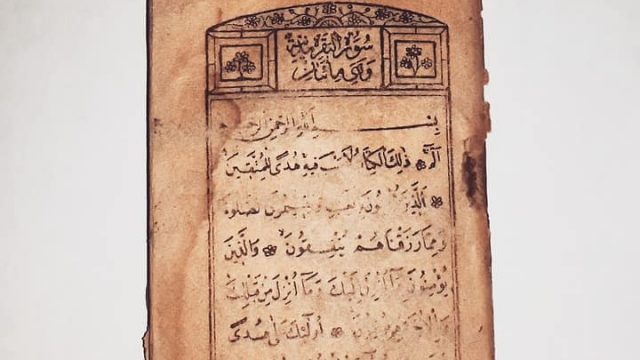 سورة البقرة مدنية
وهي مائتان
بسم الله الرحمن الرحيم
الم ذٰلِكَ الكتاب فِيهِ هُدًى لِلْمُتَّقِينَ
اَلَّذِينَ يؤمنون بالغيب ويقيمون الصلوة
وَمِمَّا رَزَقْنَاهُمْ يُنْفِقُونَ وَالَّذِينَ
يُؤْمِنُونَ بِمَا اُنْزِلَ اِلَيْكَ وَمَا اُنْزِلَ مِنْ قَبْلِكَ
وَبِالْاٰخِرَةِ هُمْ يُوقِنُونَ اُولٰئِكَ عَلٰى هُدًى